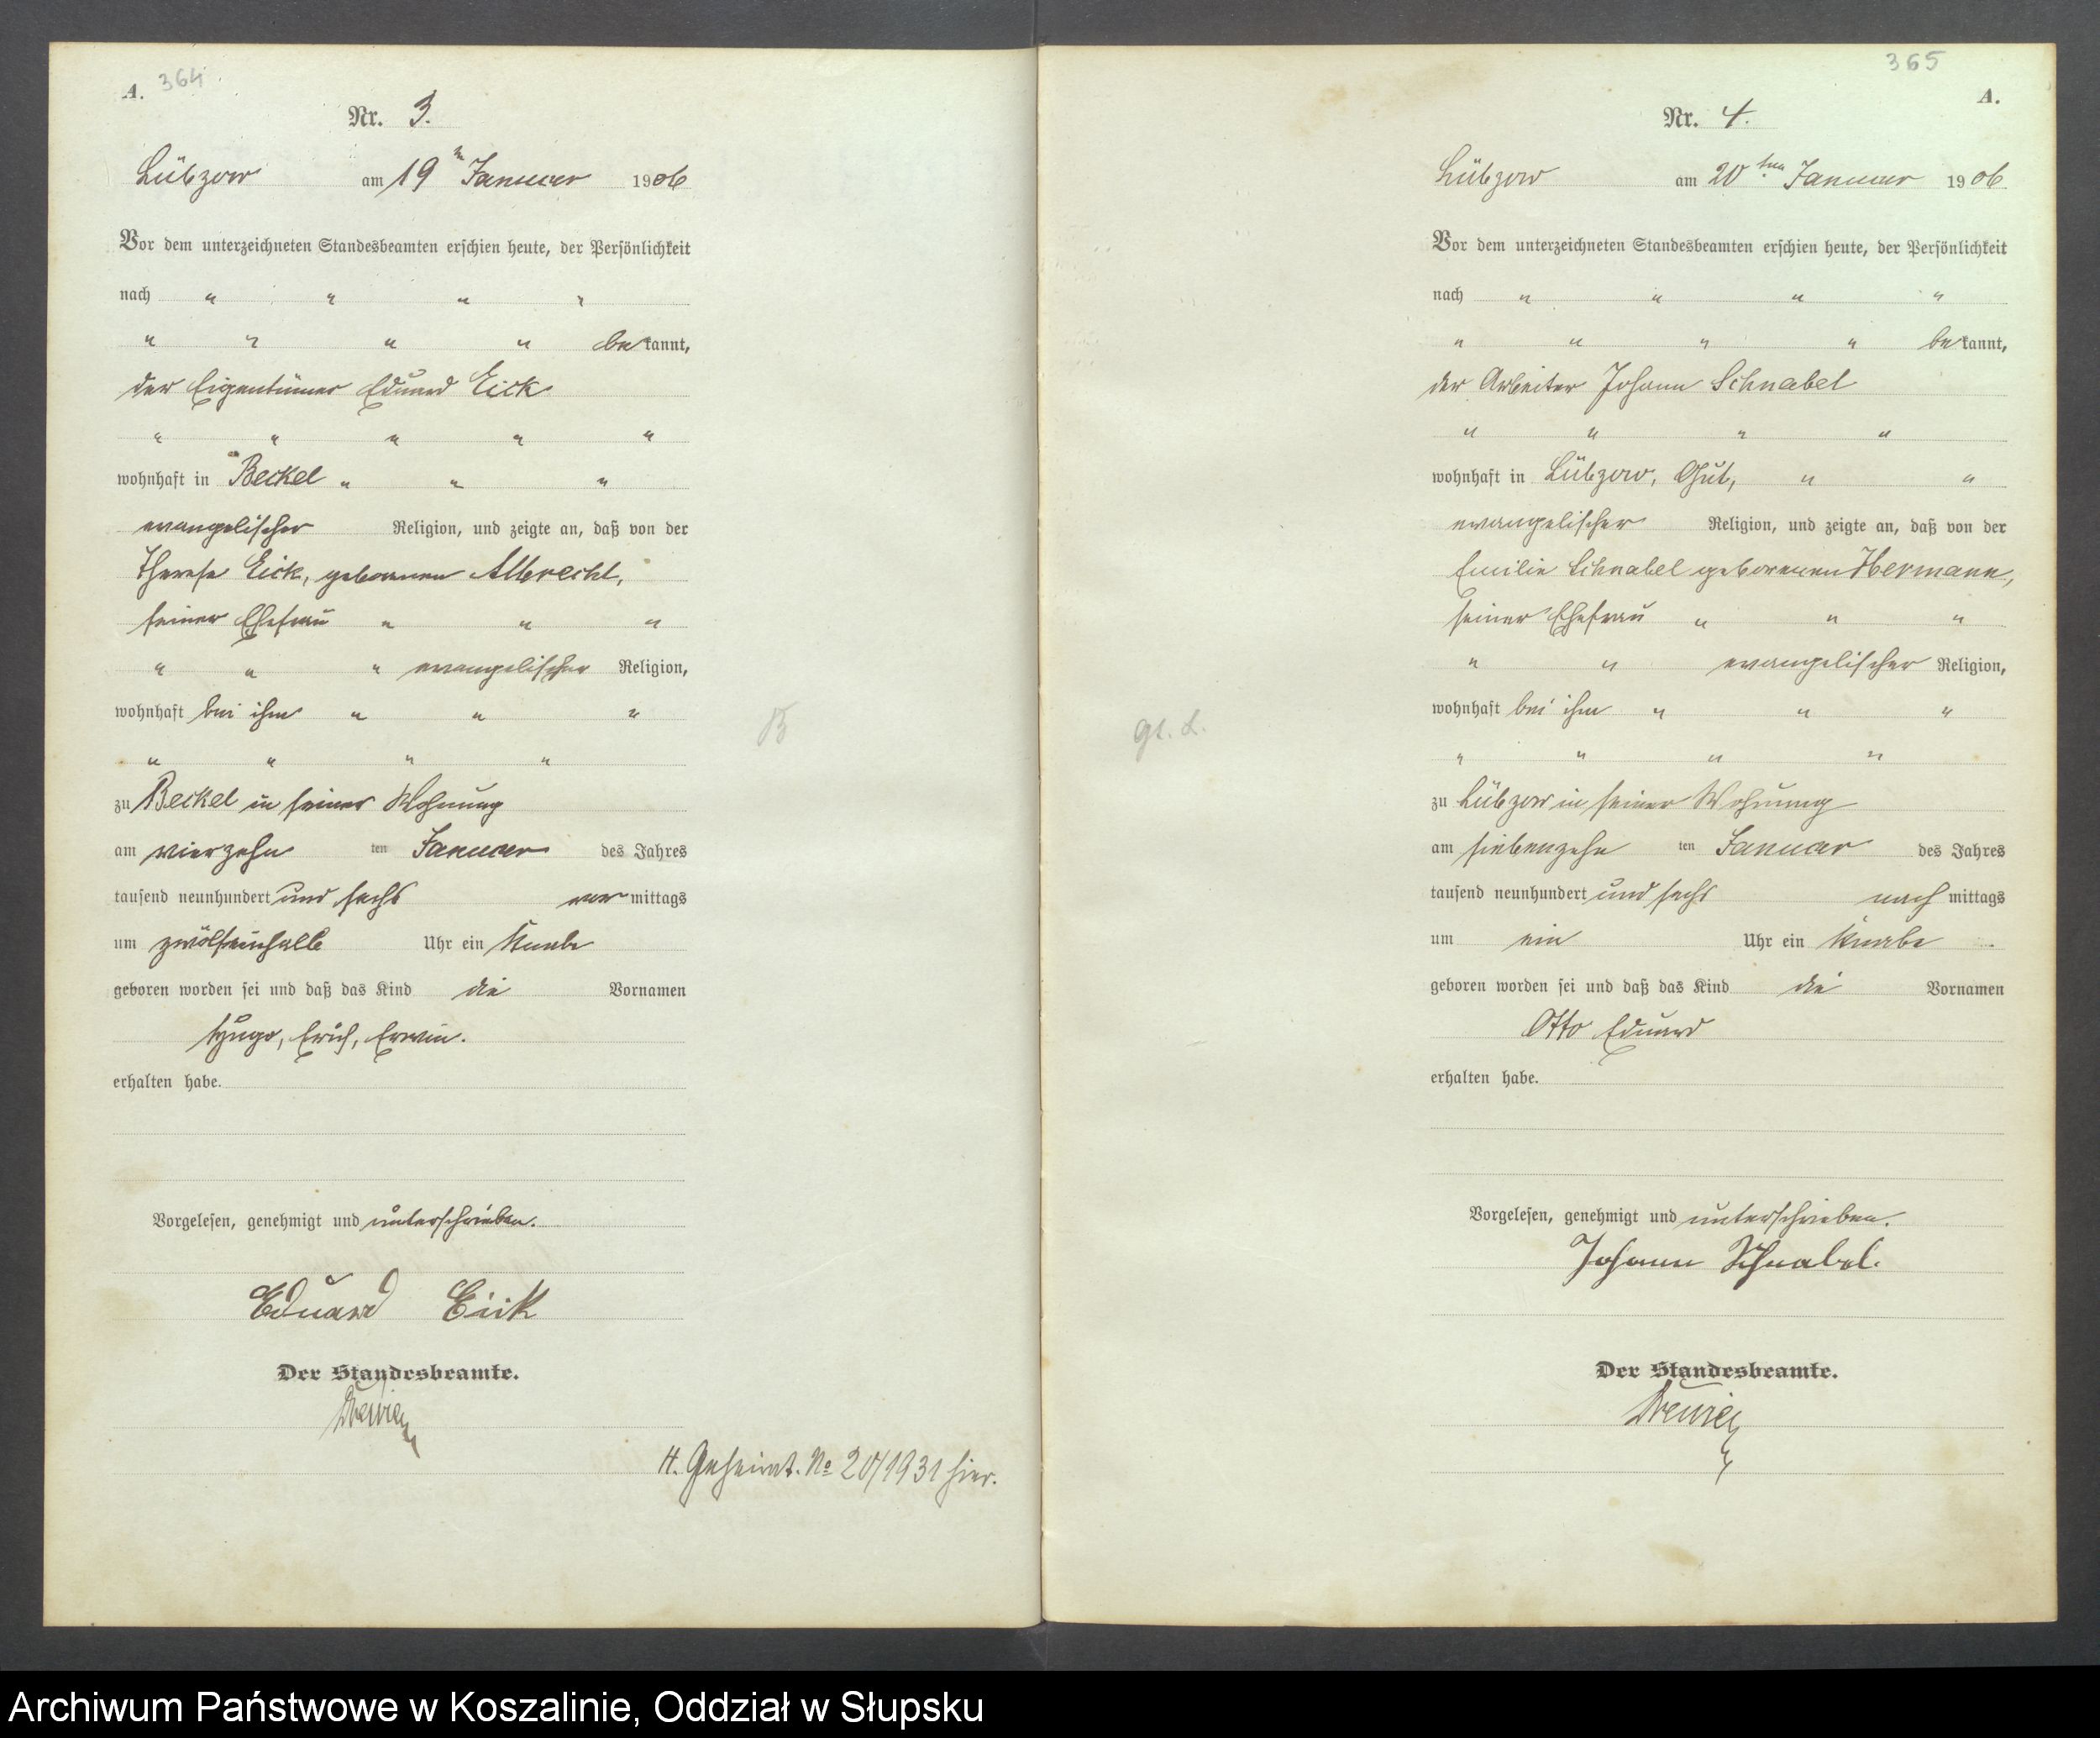 A. 364
Nr. 3.
Lübzow am 19ten Januar 1906
Vor dem unterzeichneten Standesbeamten erschien heute, der Persönlichkeit
nach " " " "
" " " " bekannt,
der Eigentümer Eduard Eick
" " " " "
wohnhaft in Beckel " " "
evangelischer Religion, und zeigte an, daß von der
Therese Eick, geborenen Albrecht,
seiner Ehefrau " " "
" " " evangelischer Religion,
wohnhaft bei ihm " " "
" " " "
zu Beckel in seiner Wohnung
am vierzehn ten Januar des Jahres
tausend neunhundert und sechs vor mittags
um zwölfeinhalb Uhr ein Knabe
geboren worden sei und daß das Kind die Vornamen
Hugo, Erich, Erwin.
erhalten habe.
Vorgelesen, genehmigt und unterschrieben.
Eduard Eick
Der Standesbeamte.
H. Geheirat. No 20/1931 hier.
B
365
A.
Nr. 4.
Lübzow am 20ten Januar 1906
Vor dem unterzeichneten Standesbeamten erschien heute, der Persönlichkeit
nach " " " "
" " " " bekannt,
der Arbeiter Johann Schnabel
" " " "
wohnhaft in Lübzow, Gut, " "
evangelischer Religion, und zeigte an, daß von der
Emilie Schnabel geborenen Hermann,
seiner Ehefrau " " "
" " evangelischer Religion,
wohnhaft bei ihm " " "
" " " "
zu Lübzow in seiner Wohnung
am siebenzehn ten Januar des Jahres
tausend neunhundert und sechs nach mittags
um ein Uhr ein Knabe
geboren worden sei und daß das Kind die Vornamen
Otto Eduard
erhalten habe.
Vorgelesen, genehmigt und unterschrieben.
Johann Schnabel.
Der Standesbeamte.
gt. L.
Archiwum Państwowe w Koszalinie, Oddział w Słupsku